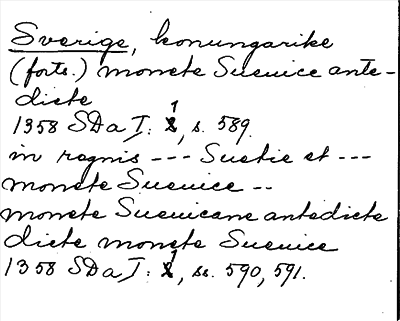 Sverige, konungarike
(forts.) monete Sueuice ante-
dicte
1358 SDa I: 1, s. 589.
in regnis --- Suetie et ---
monete Sueuice --
monete Sueuicane antedicte
dicte monete Sueuice
1358 SDa I: 1, ss. 590, 591.